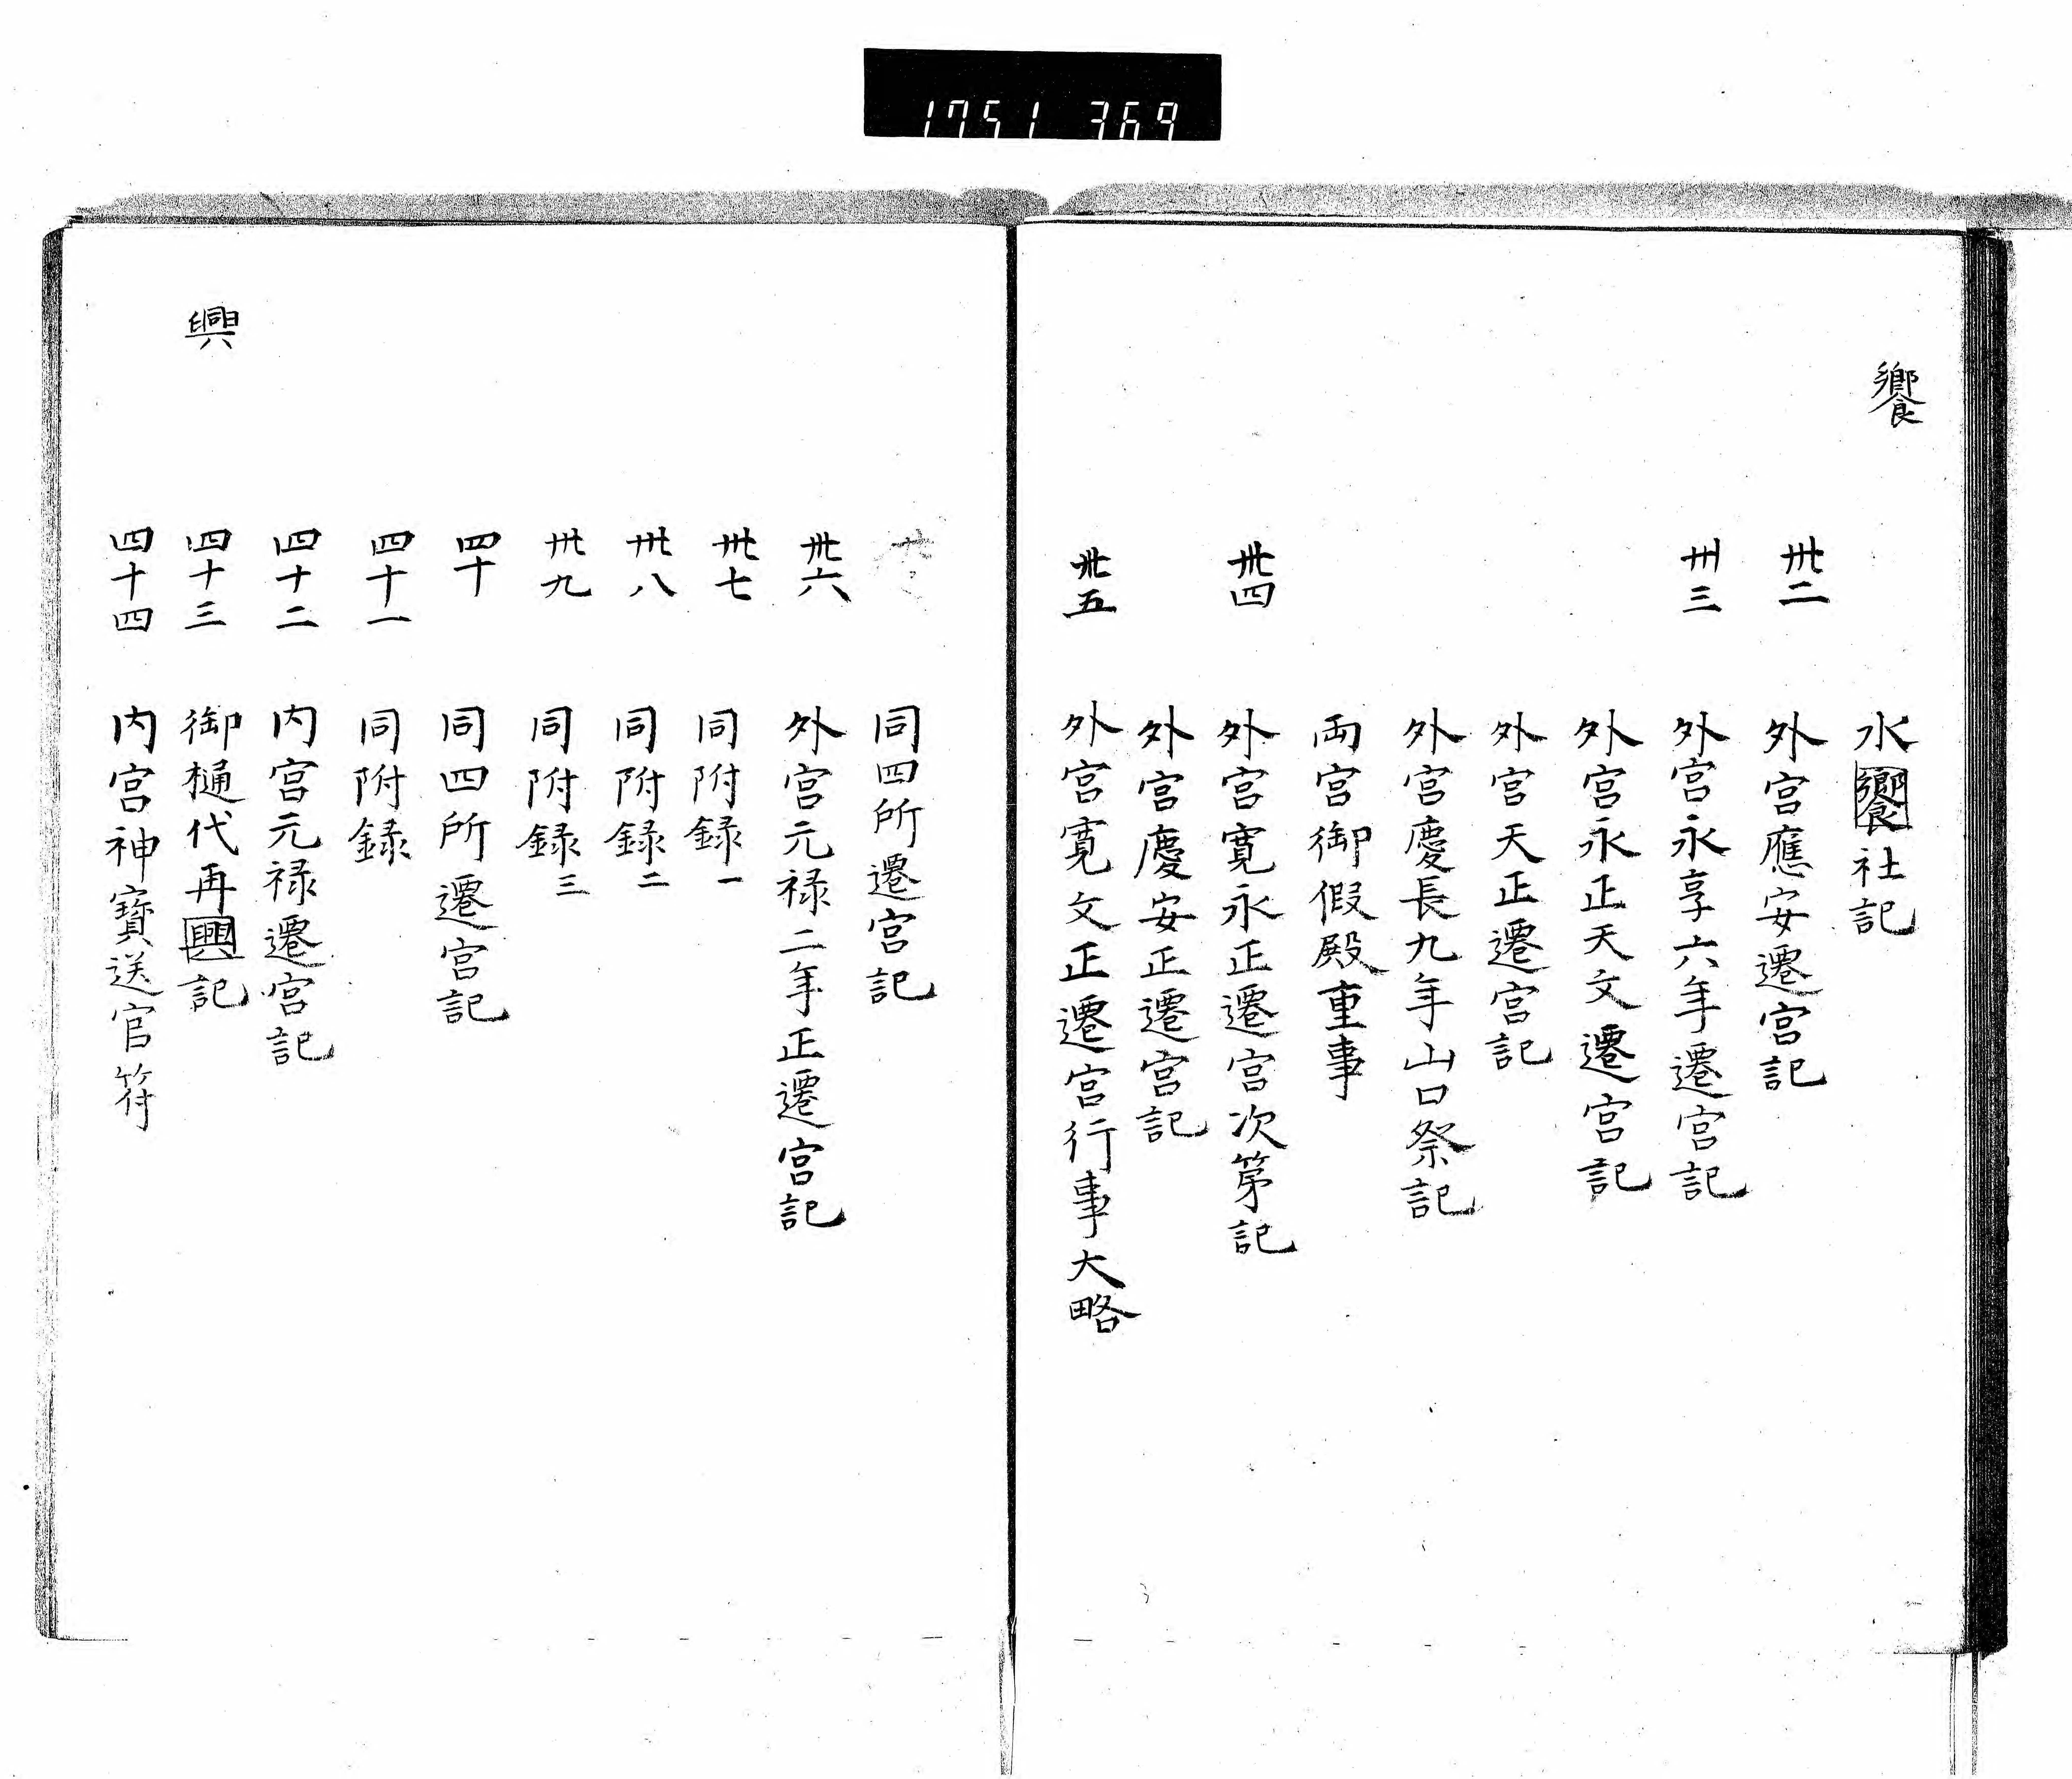 1751 369
饗
水饗社記
卅二 外宮應安遷宮記
卅三 外宮永享六年遷宮記
外宮永正天文遷宮記
外宮天正遷宮記
外宮慶長九年山口祭記
両宮御假殿重事
卅四 外宮寛永正遷宮次第記
外宮慶安正遷宮記
卅五 外宮寛文正遷宮行事大略
同四所遷宮記
卅六 外宮元禄二年正遷宮記
卅七 同附録一
卅八 同附録二
卅九 同附録三
四十 同四所遷宮記
四十一 同附録
四十二 内宮元禄遷宮記
興
四十三 御樋代再興記
四十四 内宮神寶送官符